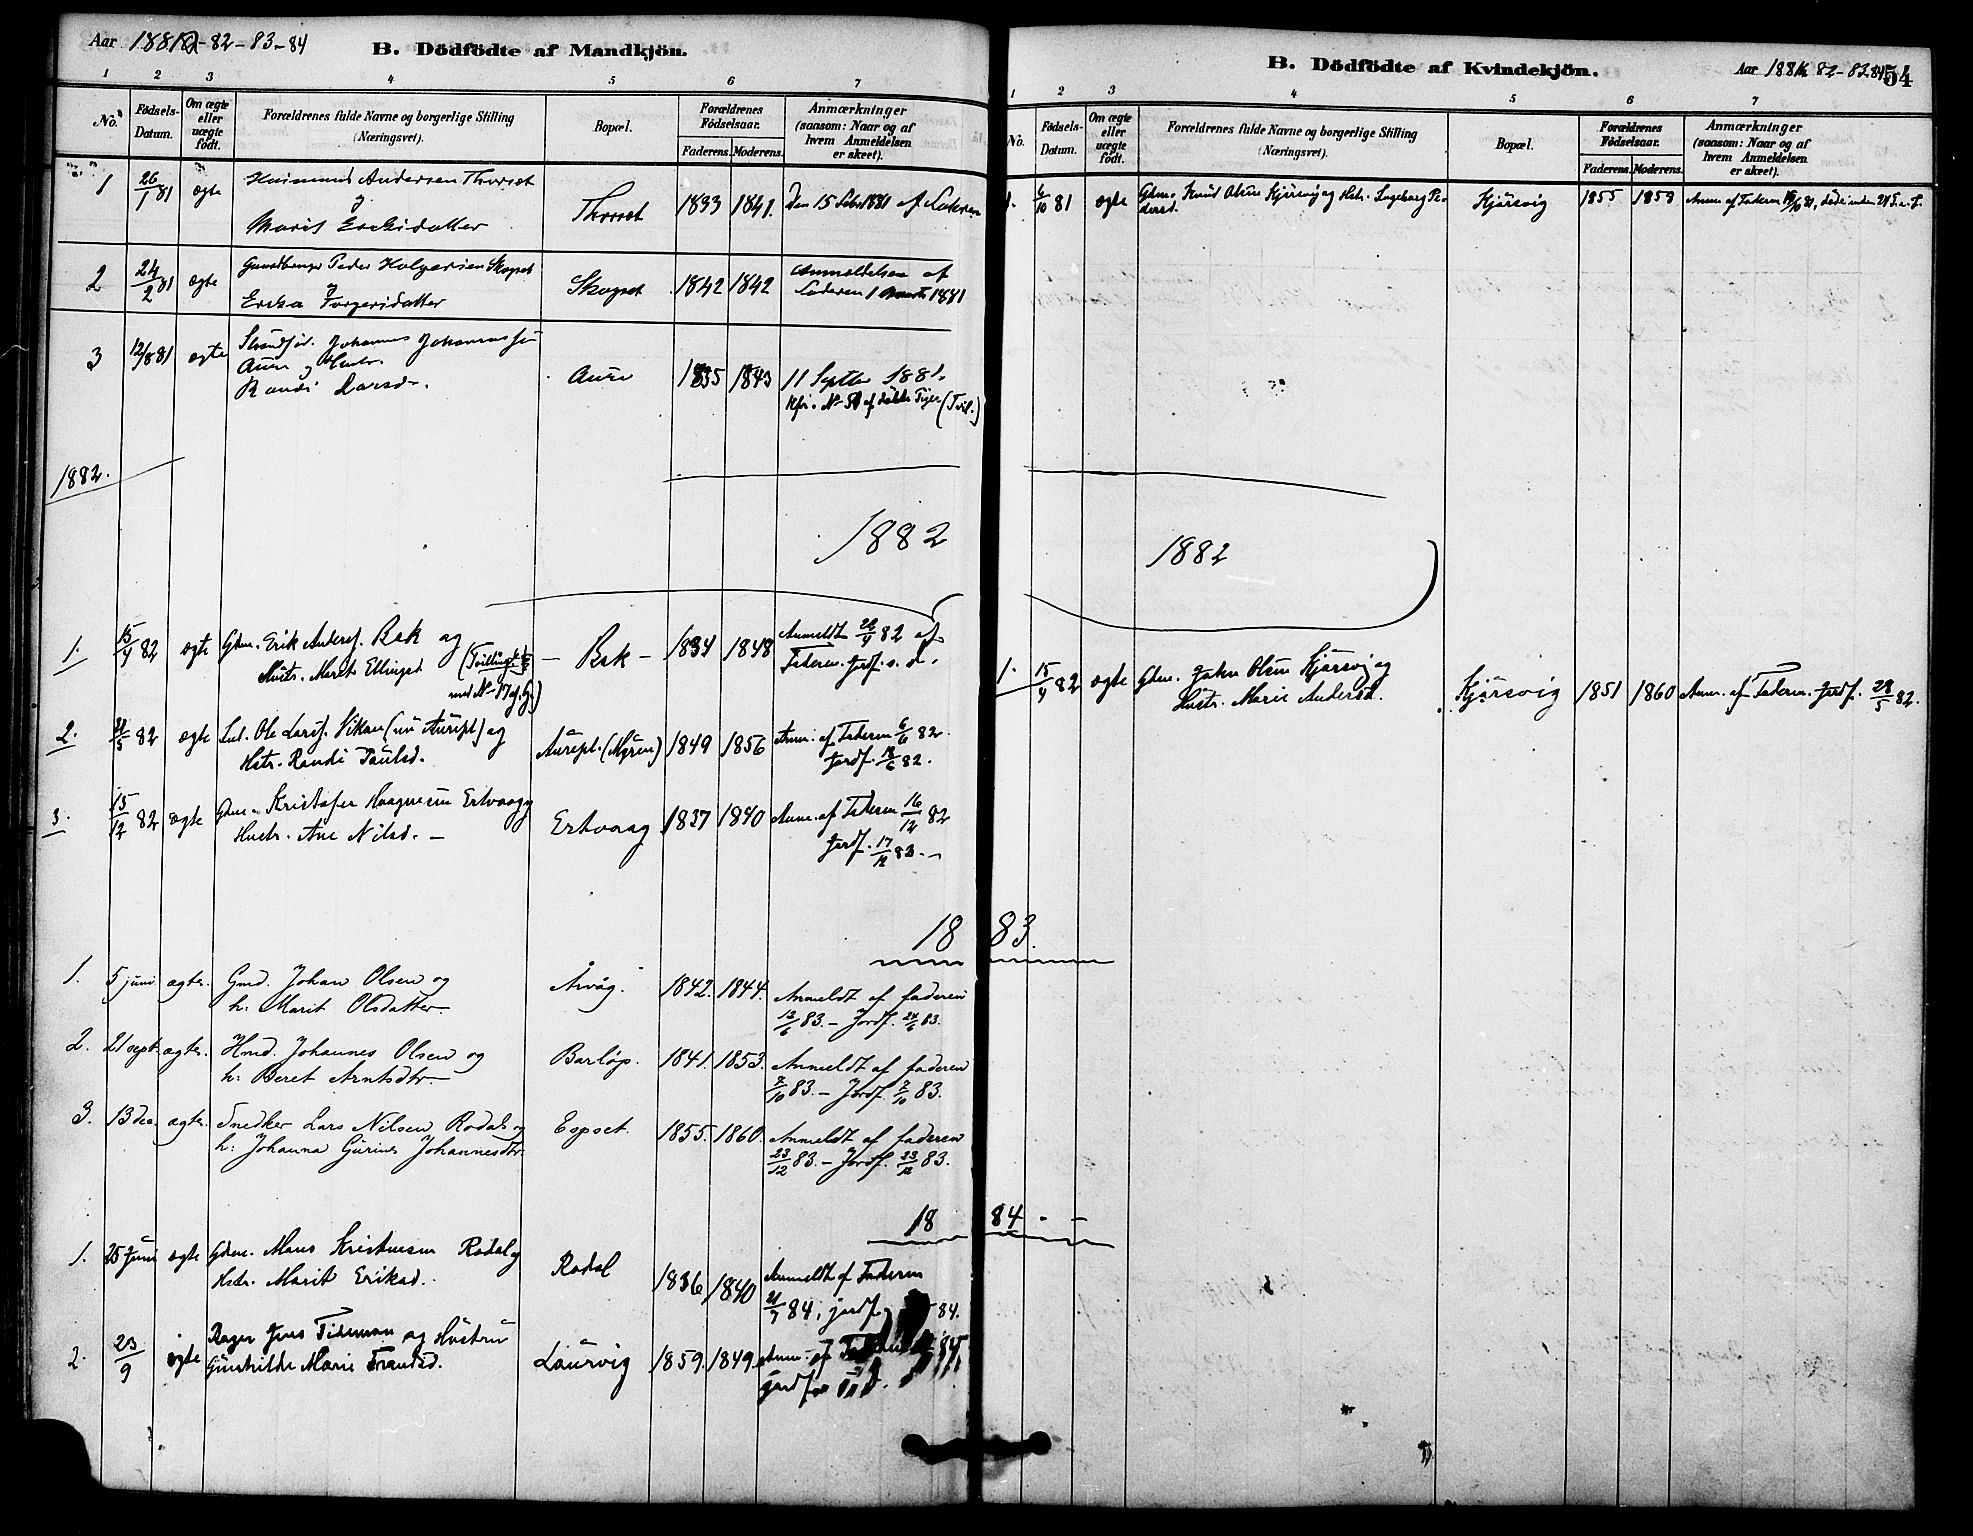 Aar 1881-82-83-84
B. Dödfödte af Mandkjön.
1 2 3 4 5 6 7
No.
Födsels-Datum.
Om ægte eller uægte födt.
Forældrenes fulde Navne og borgerlige Stilling
(Næringsvei).
Bopæl.
Forældrenes Födselsaar.
Faderens. Moderens.
Anmærkninger
(saasom: Naar og af
hvem Anmeldelsen
er skeet).
1 26/1 81 ægte Andersen Thorset
og
Marit Ericksdatter
Thorset 1833 1841. Den 15 Febr 1881 af Faderen
2 24/2 81 ægte Peder Holgersen Skogset
og
Ericka Torgersdatter
Skogset 1842 1842 Anmeldelsen af
Faderen 1 Marts 1881
3 12/8 81 ægte Johannes
Aure og Hustr.
Randi Larsd.
Aure 1835 1843 11 Septbr 1881.
1882.
1882
1. 15/4 82 ægte Gdm. Erik Anders. Rak og
Hustr. Marit Ellingsd.
(Tvilling
med No 17
– Rak – 1834 1848 Anmeldt 22/4 82 af
Faderen. Jordf. s. d.
2. 82 ægte Ole Lars. Vikan (nu Aurept) og
Hstr. Randi Paulsd.
Aurept. (Myren) 1849 1856 Anm. af Faderen 6/6 82.
Jordf. 18/6 82.
3. 15/12 82 ægte Gdm. Kristofer Haagensen Ertvaag og
Hustr. Ane Nilsd. –
Ertvaag 1837 1840 Anm. af Faderen 16/12 82
Jordf. 17/12 82. –
1883.
1. 5 juni ægte. Gmd. Johan Olsen og
h: Marit Olsdatter
Årvåg. 1842. 1844. Anmeldt af faderen
12/6 83. – Jordf. 24/6 83.
2. 21 sept. ægte. Hmd. Johannes Olsen og
h: Beret Arntsdtr.
Barløp. 1841. 1853. Anmeldt af faderen
7/10 83. – Jordf. 7/10 83.
3. 13 dec. ægte. Snedker Lars Nilsen Rodal og
h: Johanna Gurine Johannesdtr.
Espset. 1855. 1860. Anmeldt af faderen
23/12 83. – Jordf. 23/12 83.
1884 - -
1. 25 Juni ægte Gdm. Mons Kristensen Rodal og
Hstr. Marit Eriksd.
Rodal 1836 1840 Anmeldt af Faderen
84, jordf. 84.
2. 23/9 ægte Jens Tideman og Hustru
Gunhilde Marie Frantsd.
Laurvig 1859. 1849. Anm. af
jordf.
B. Dödfödte af Kvindekjön.
Aar 1881 82-83 84
54
1 2 3 4 5 6 7
No.
Födsels-Datum.
Om ægte eller uægte födt.
Forældrenes fulde Navne og borgerlige Stilling
(Næringsvei).
Bopæl.
Forældrenes Födselsaar.
Faderens. Moderens.
Anmærkninger
(saasom: Naar og af
hvem Anmeldelsen
er skeet).
1. 6/10 81 ægte Gdm. Knud Olsen Kjørsvig og Hstr. Ingeborg Pe-
dersd.
Kjørsvig 1855 1859 Anm. af Faderen
1882
1. 15/4 82 ægte Gdm. Johan Olsen Kjørsvig og
Hustr. Marie Andersd.
Kjørsvig 1851 1860 Anm. af Faderen. Jordf. 28/5 82.